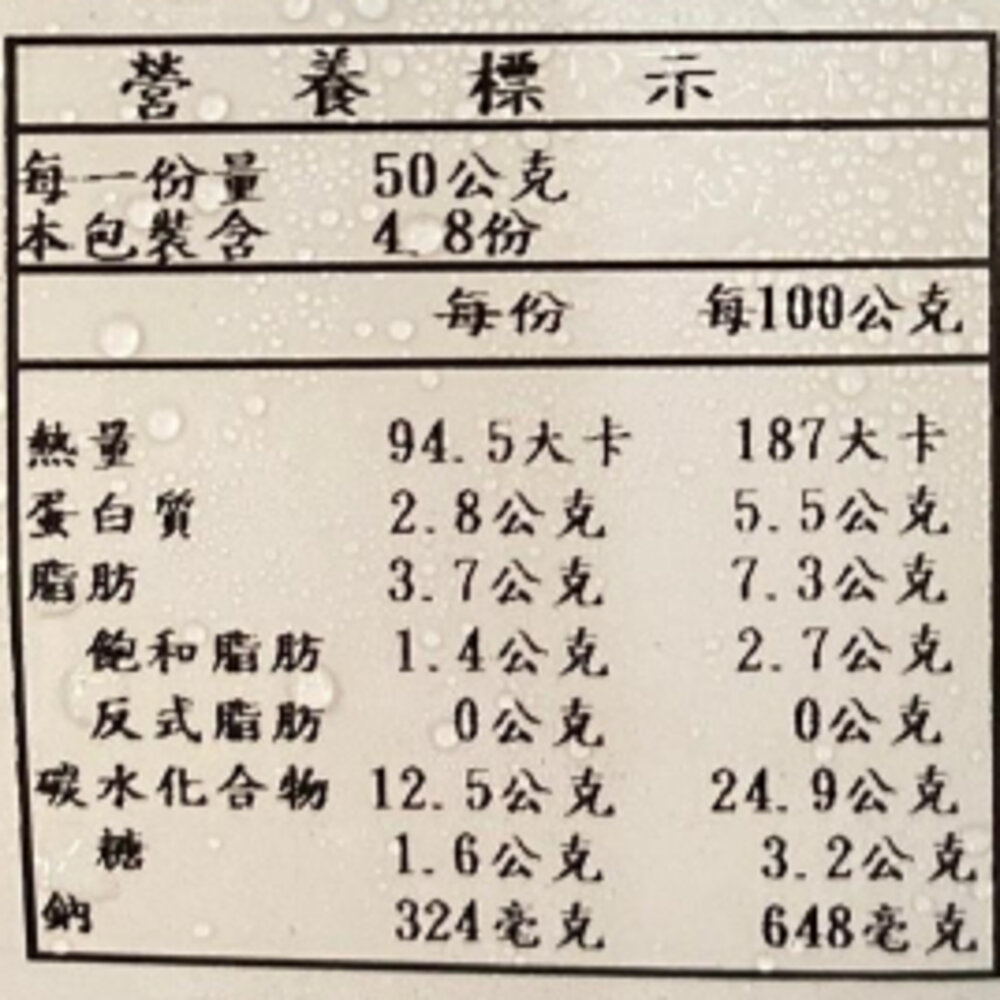 營養標示
每一份量 50公克
本包裝含 4.8份
每份 每100公克
熱量 94.5大卡 187大卡
蛋白質 2.8公克 5.5公克
脂肪 3.7公克 7.3公克
飽和脂肪 1.4公克 2.7公克
反式脂肪 0公克 0公克
碳水化合物 12.5公克 24.9公克
糖 1.6公克 3.2公克
鈉 324毫克 648毫克